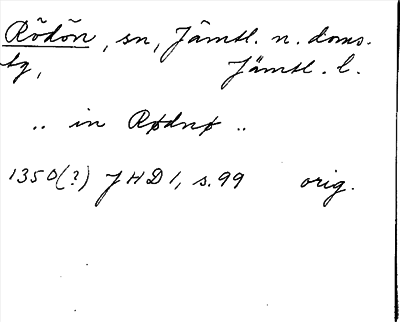 Rödön, sn, Jämtl. n. doms.
tg, Jämtl. l.
.. in Rødnø ..
1350(?) JHD 1, s. 99 orig.